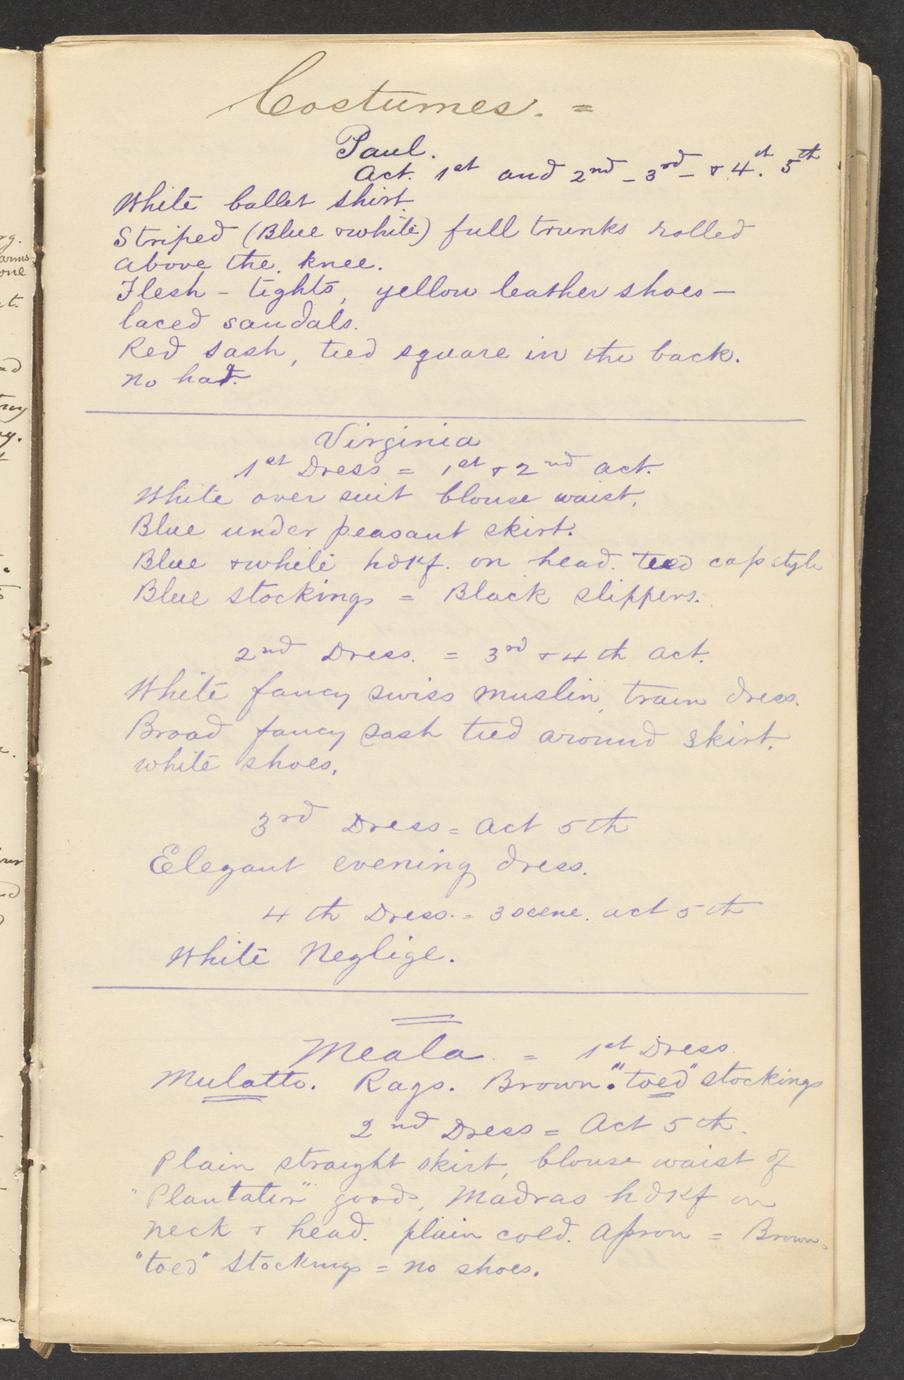 Costumes. =
Paul.
Act. 1st and 2nd - 3rd - & 4th. 5th
White ballet shirt
Striped (Blue & white) full trunks rolled
above the. knee.
Flesh - tights, yellow leather shoes -
laced sandals.
Red sash, tied square in the back.
no hat.
Virginia
1st Dress = 1st & 2nd act.
White over suit blouse waist,
Blue under peasant skirt.
Blue & white hdkf. on head. tied cap style
Blue stockings = Black slippers.
2nd Dress. = 3rd & 4th act.
White fancy swiss muslin, train dress.
Broad fancy sash tied around skirt.
white shoes.
3rd Dress = Act 5th
Elegant evening dress.
4th Dress. = 3 scene. act 5th
White Neglige.
Meala = 1st Dress
Mulatto. Rags. Brown. "toed" stockings
2nd Dress = Act 5th.
Plain straight skirt, blouse waist of
"Plantation" goods, Madras hdkf on
neck & head. plain cold. Apron = Brown
"toed" Stockings = no shoes.